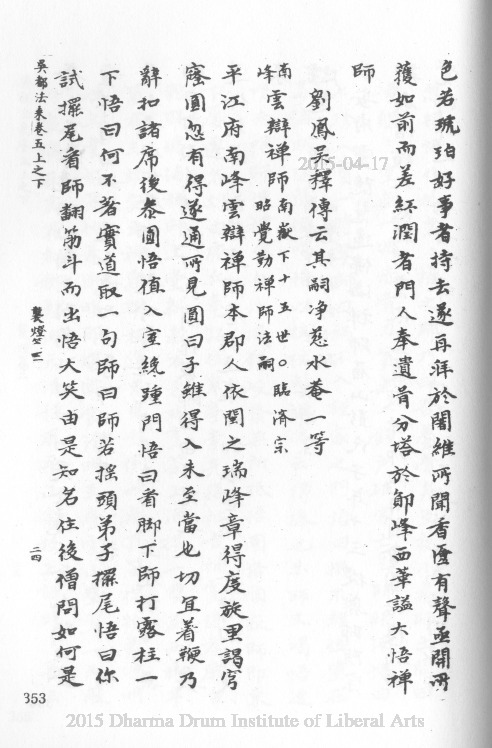 色若琥珀好事者持去遂再拜於闍維所聞香匳有聲亟開所
獲如前而差紅潤者門人奉遺骨分塔於鄮峰西華謚大悟禪
師
劉鳳吳釋傳云其嗣淨慈水菴一等
南峰雲辯禪師南嶽下十五世○臨濟宗
昭覺勤禪師法嗣
平江府南峰雲辯禪師本郡人依閩之瑞峰章得度旋里謁穹
窿圓忽有得遂通所見圓曰子雖得入未至當也切宜着鞭乃
辭扣諸席後參圓悟値入室纔踵門悟曰看脚下師打露柱一
下悟曰何不著實道取一句師曰師若搖頭弟子擺尾悟曰你
試擺尾看師翻筋斗而出悟大笑由是知名住後僧問如何是
吳都法乘卷五上之下
襲燈
二四
353
2015-04-17
2015 Dharma Drum Institute of Liberal Arts